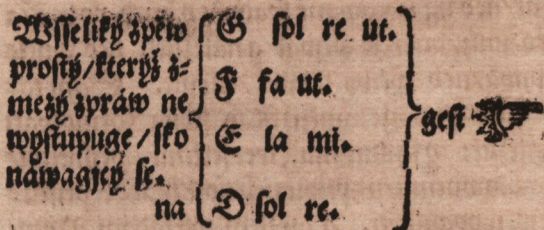 Wsseliký zpěw
prostý/kterýž z-
mezý zpráw ne
wystupuge/sko
náwagjcý se.
na
G sol re ut.
F fa ut.
E la mi.
D sol re.
gest ☞